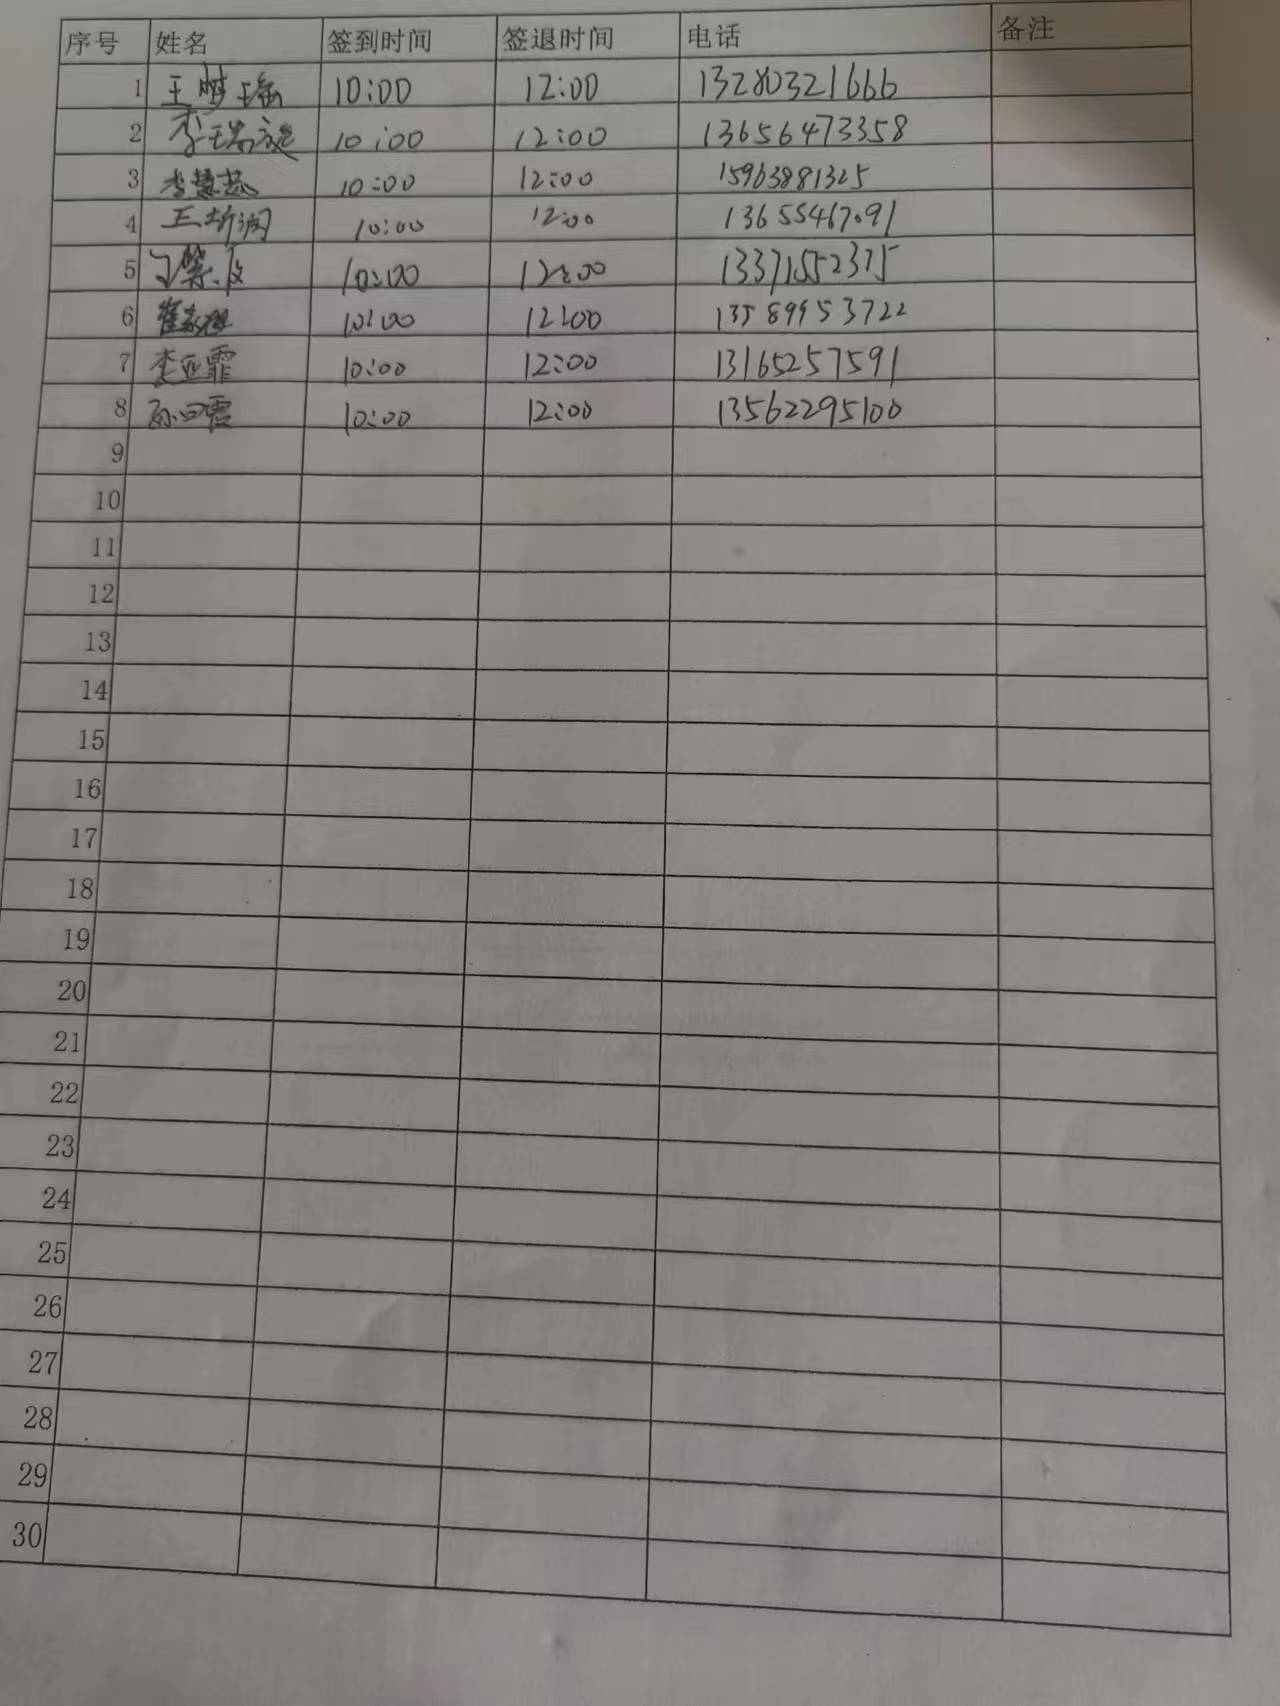 序号 姓名 签到时间 签退时间 电话 备注
1 王梦瑶 10:00 12:00 13280321666
2 李瑞 10:00 12:00 13656473358
3 李慧 10:00 12:00 15963881325
4 王 10:00 12:00 13655467091
5 10:00 12:00 13371552375
6 崔 10:00 12:00 13589953722
7 李亚霏 10:00 12:00 13165257591
8 孙 霞 10:00 12:00 13562295100
9
10
11
12
13
14
15
16
17
18
19
20
21
22
23
24
25
26
27
28
29
30